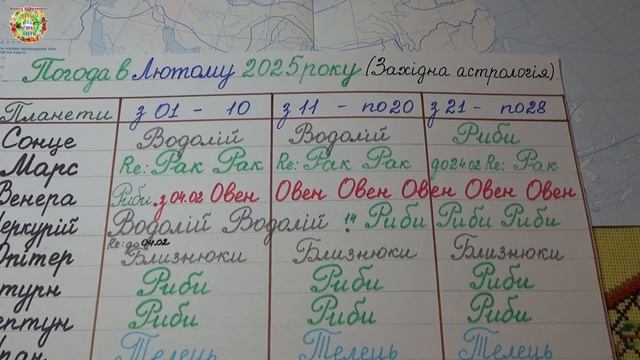 Погода в Лютому 2025 року (Західна астрологія)
Планети з 01 - 10 з 11 - по 20 з 21 - по 28
Сонце Водолій Водолій Риби
Марс Re: Рак Рак Re: Рак Рак до 24.02 Re: Рак
Венера Риби з 04.02 Овен Овен Овен Овен Овен Овен
еркурій Водолій Водолій 14 Риби Риби Риби
Re: до 04.02
пітер Близнюки Близнюки Близнюки
турн Риби Риби Риби
ептун Риби Риби Риби
ран Телець Телець Телець